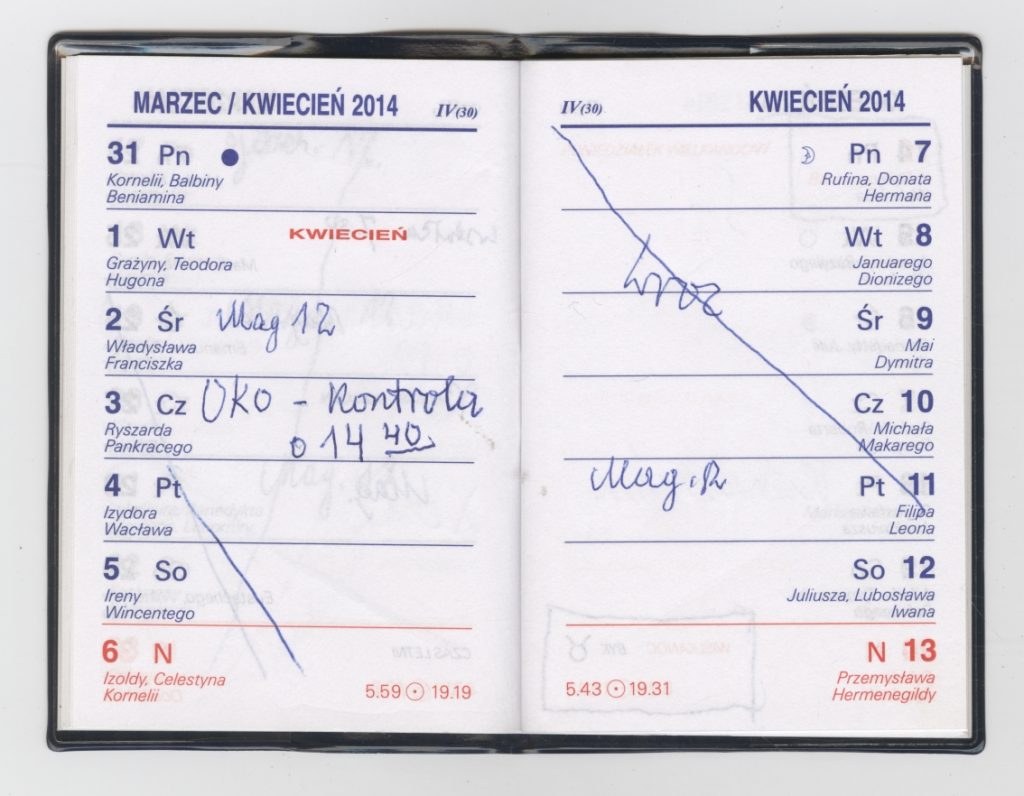 MARZEC / KWIECIEŃ 2014 IV(30)
31 Pn
Kornelii, Balbiny
Beniamina
1 Wt KWIECIEŃ
Grażyny, Teodora
Hugona
2 Śr Mag 12
Władysława
Franciszka
3 Cz OKO - Kontrola
Ryszarda
Pankracego
o 14 40
4 Pt
Izydora
Wacława
5 So
Ireny
Wincentego
6 N
Izoldy, Celestyna
Kornelii
5.59 19.19
IV(30) KWIECIEŃ 2014
Pn 7
Rufina, Donata
Hermana
Wt 8
Januarego
Dionizego
Śr 9
Mai
Dymitra
Cz 10
Michała
Makarego
Mag. Pt 11
Filipa
Leona
So 12
Juliusza, Lubosława
Iwana
N 13
Przemysława
Hermenegildy
5.43 19.31